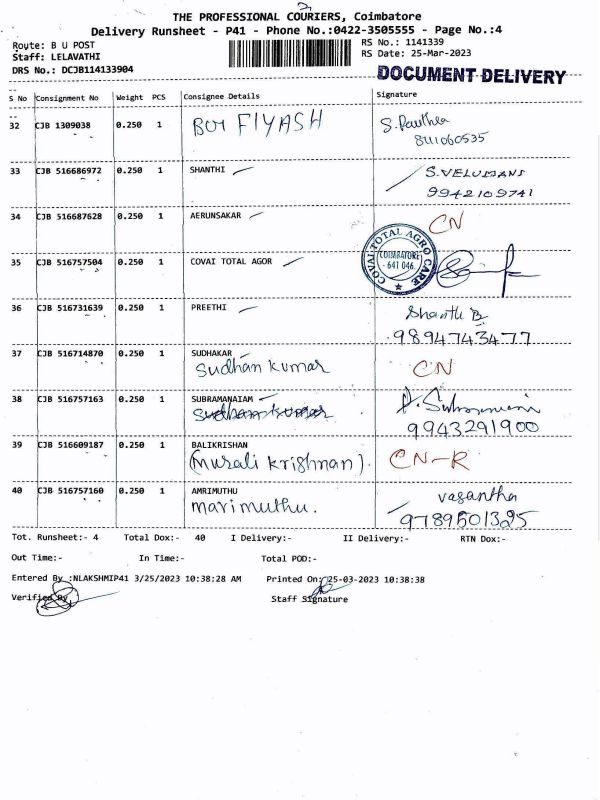 THE PROFESSIONAL COURIERS, Coimbatore
Delivery Runsheet - P41 - Phone No.:0422-3505555 - Page No.:4
Route: B U POST RS No.: 1141339
Staff: LELAVATHI RS Date: 25-Mar-2023
DRS No.: DCJB114133904 DOCUMENT DELIVERY
S No Consignment No Weight PCS Consignee Details Signature
32 CJB 1309038 0.250 1 BOI FIYASH S.
811060535
33 CJB 516686972 0.250 1 SHANTHI S.VELUMANI
9942109741
34 CJB 516687628 0.250 1 AERUNSAKAR CN
35 CJB 516757504 0.250 1 COVAI TOTAL AGOR COVAI TOTAL AGRO CARE COIMBATORE - 641 046.
36 CJB 516731639 0.250 1 PREETHI Shanthi B
9894743477
37 CJB 516714870 0.250 1 SUDHAKAR
Sudhan kumar CN
38 CJB 516757163 0.250 1 SUBRAMANAIAM
Sudhan kumar 9943291900
39 CJB 516609187 0.250 1 BALIKRISHAN
(Murali krishnan) CN-R
40 CJB 516757160 0.250 1 AMRIMUTHU vasantha
marimuthu. 9789501325
Tot. Runsheet:- 4 Total Dox:- 40 I Delivery:- II Delivery:- RTN Dox:-
Out Time:- In Time:- Total POD:-
Entered By :NLAKSHMIP41 3/25/2023 10:38:28 AM Printed On: 25-03-2023 10:38:38
Verified By Staff Signature